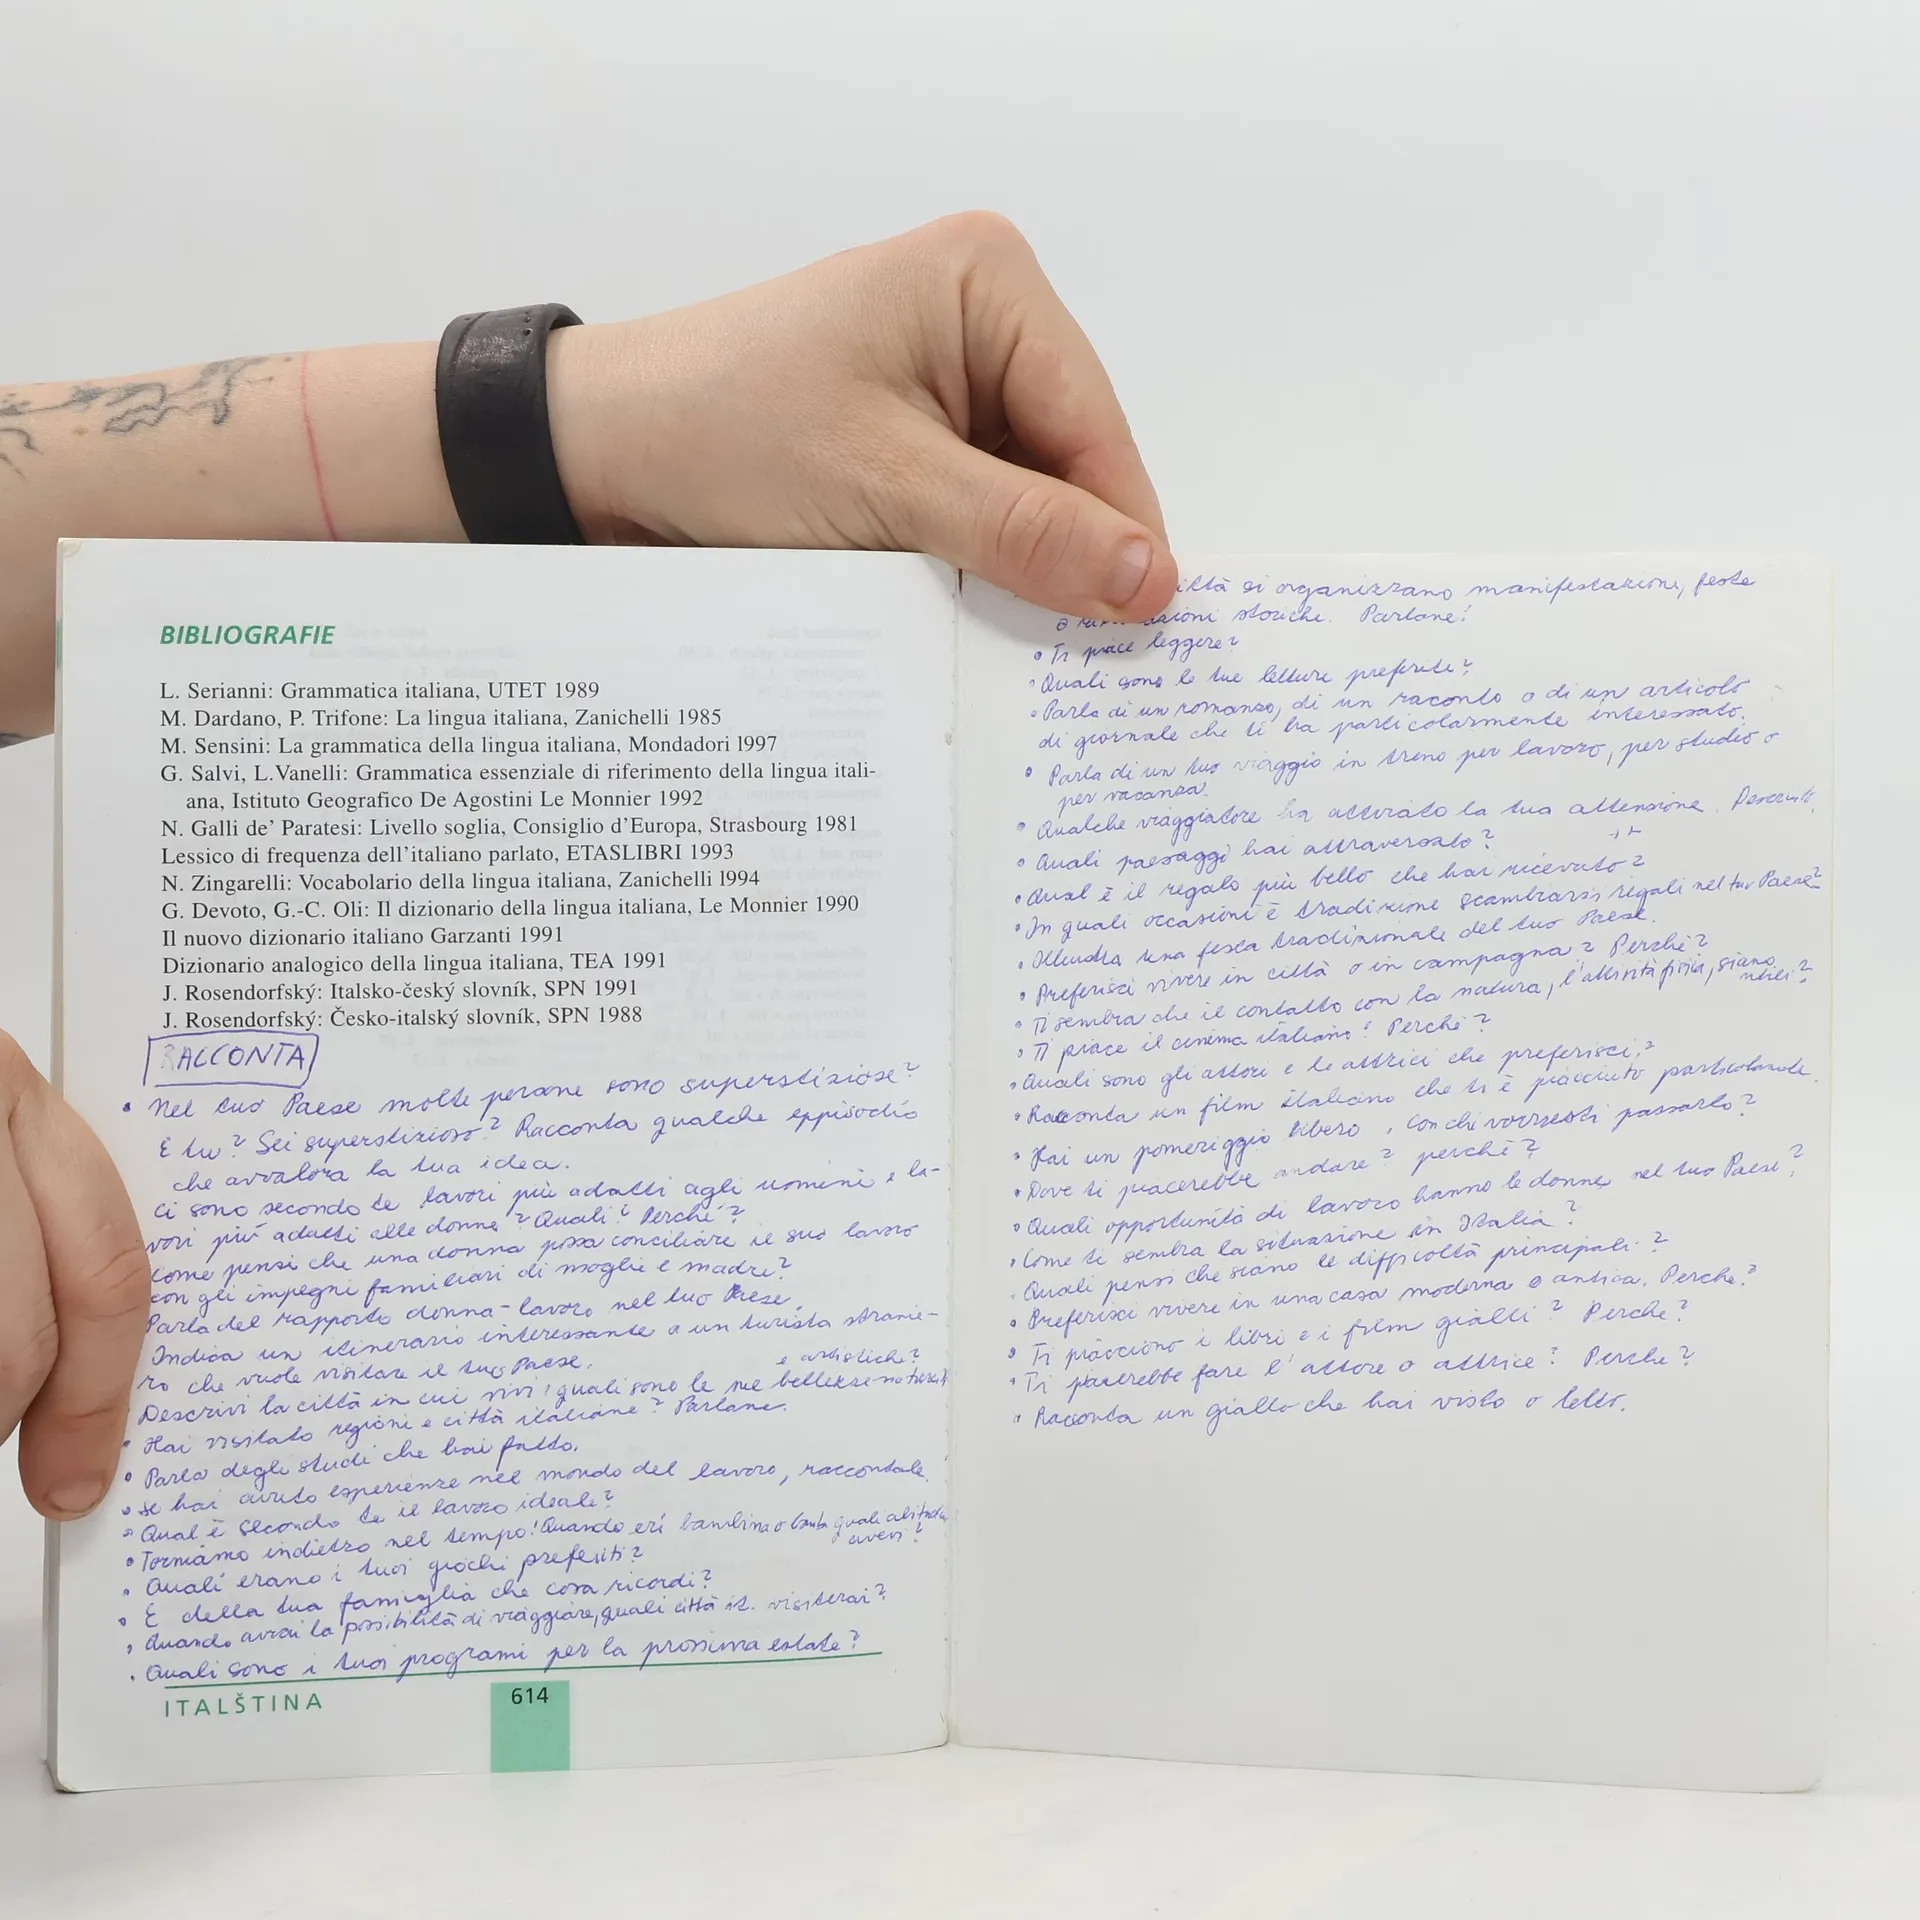 BIBLIOGRAFIE
L. Serianni: Grammatica italiana, UTET 1989
M. Dardano, P. Trifone: La lingua italiana, Zanichelli 1985
M. Sensini: La grammatica della lingua italiana, Mondadori 1997
G. Salvi, L.Vanelli: Grammatica essenziale di riferimento della lingua itali-
ana, Istituto Geografico De Agostini Le Monnier 1992
N. Galli de' Paratesi: Livello soglia, Consiglio d'Europa, Strasbourg 1981
Lessico di frequenza dell'italiano parlato, ETASLIBRI 1993
N. Zingarelli: Vocabolario della lingua italiana, Zanichelli 1994
G. Devoto, G.-C. Oli: Il dizionario della lingua italiana, Le Monnier 1990
Il nuovo dizionario italiano Garzanti 1991
Dizionario analogico della lingua italiana, TEA 1991
J. Rosendorfský: Italsko-český slovník, SPN 1991
J. Rosendorfský: Česko-italský slovník, SPN 1988
RACCONTA
• Nel tuo Paese molte persone sono superstiziose?
E tu? Sei superstizioso? Racconta qualche eppisodio
che avvalora la tua idea.
Ci sono secondo te lavori più adatti agli uomini e la-
vori più adatti alle donne? Quali? Perché?
Come pensi che una donna possa conciliare il suo lavoro
con gli impegni familiari di moglie e madre?
Parla del rapporto donna-lavoro nel tuo Paese.
Indica un itinerario interessante a un turista stranie-
ro che vuole visitare il tuo Paese.
e artistiche?
Descrivi la città in cui vivi, quali sono le sue bellezze naturali
• Hai visitato regioni e città italiane? Parlane.
• Parla degli studi che hai fatto.
• Se hai avuto esperienze nel mondo del lavoro, raccontale.
• Qual è secondo te il lavoro ideale?
• Torniamo indietro nel tempo! Quando eri bambina o quali abitudini
avevi?
• Quali erano i tuoi giochi preferiti?
• E della tua famiglia che cosa ricordi?
• Quando avrai la possibilità di viaggiare, quali città it. visiterai?
• Quali sono i tuoi programi per la prossima estate?
ITALŠTINA
614
ittà si organizzano manifestazione, feste
o azioni storiche. Parlane!
• Ti piace leggere?
• Quali sono le tue letture preferite?
• Parla di un romanzo, di un raconto o di un articolo
di giornale che ti ha particolarmente interessato.
• Parla di un tuo viaggio in treno per lavoro, per studio o
per vacanza.
• Qualche viaggiatore ha attirato la tua attenzione.
• Quali paesaggi hai attraversato?
• Qual è il regalo più bello che hai ricevuto?
• In quali occasioni è tradizione scambiarsi regali nel tuo Paese?
• Illustra una festa tradizionale del tuo Paese.
• Preferisci vivere in città o in campagna? Perché?
• Ti sembra che il contatto con la natura, l'attività fisica, siano
utili?
• Ti piace il cinema italiano? Perché?
• Quali sono gli attori e le attrici che preferisci?
• Racconta un film italiano che ti è piacciuto
• Hai un pomeriggio libero, con chi vorresti passarlo?
• Dove ti piacerebbe andare? perché?
• Quali opportunità di lavoro hanno le donne nel tuo Paese?
• Come ti sembra la situazione in Italia?
• Quali pensi che siano le difficoltà principali?
• Preferisci vivere in una casa moderna o antica. Perche?
• Ti piacciono i libri e i film gialli? Perche?
• Ti piacerebbe fare l'attore o attrice? Perche?
• Racconta un giallo che hai visto o letto.